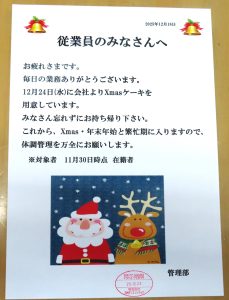 2025年12月18日
従業員のみなさんへ
お疲れさまです。
毎日の業務ありがとうございます。
12月24日(水)に会社よりXmasケーキを
用意しています。
みなさん忘れずにお持ち帰り下さい。
これから、Xmas・年末年始と繁忙期に入りますので、
体調管理を万全にお願いします。
※対象者 11月30日時点 在籍者
管理部